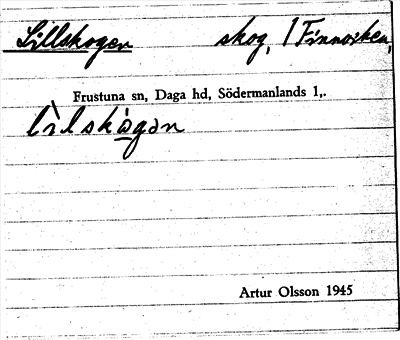 Lillskogen skog, 1 Finnviken,
Frustuna sn, Daga hd, Södermanlands l,.
lìlskògan
Artur Olsson 1945